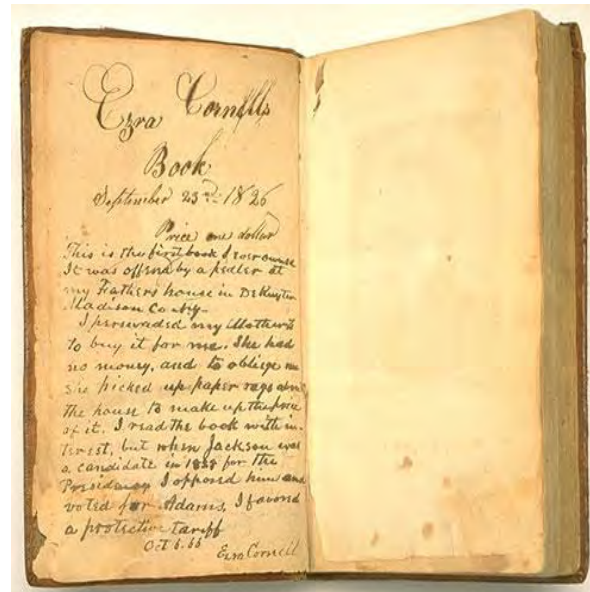 Ezra Cornells
Book
September 23rd 1826
Price one dollar
This is the first book I ever owned
It was offered by a pedler at
my Fathers house in DeRuyter
Madison Co NY
I perswaded my Mother to
to buy it for me. She had
no money, and to obliege me
she picked up paper rags about
the house to make up the price
of it. I read the book with in-
terest, but when Jackson was
a candidate in 1828 for the
Presidency I opposed him and
voted for Adams, I favored
a protective tariff
Oct 6. 66
Ezra Cornell